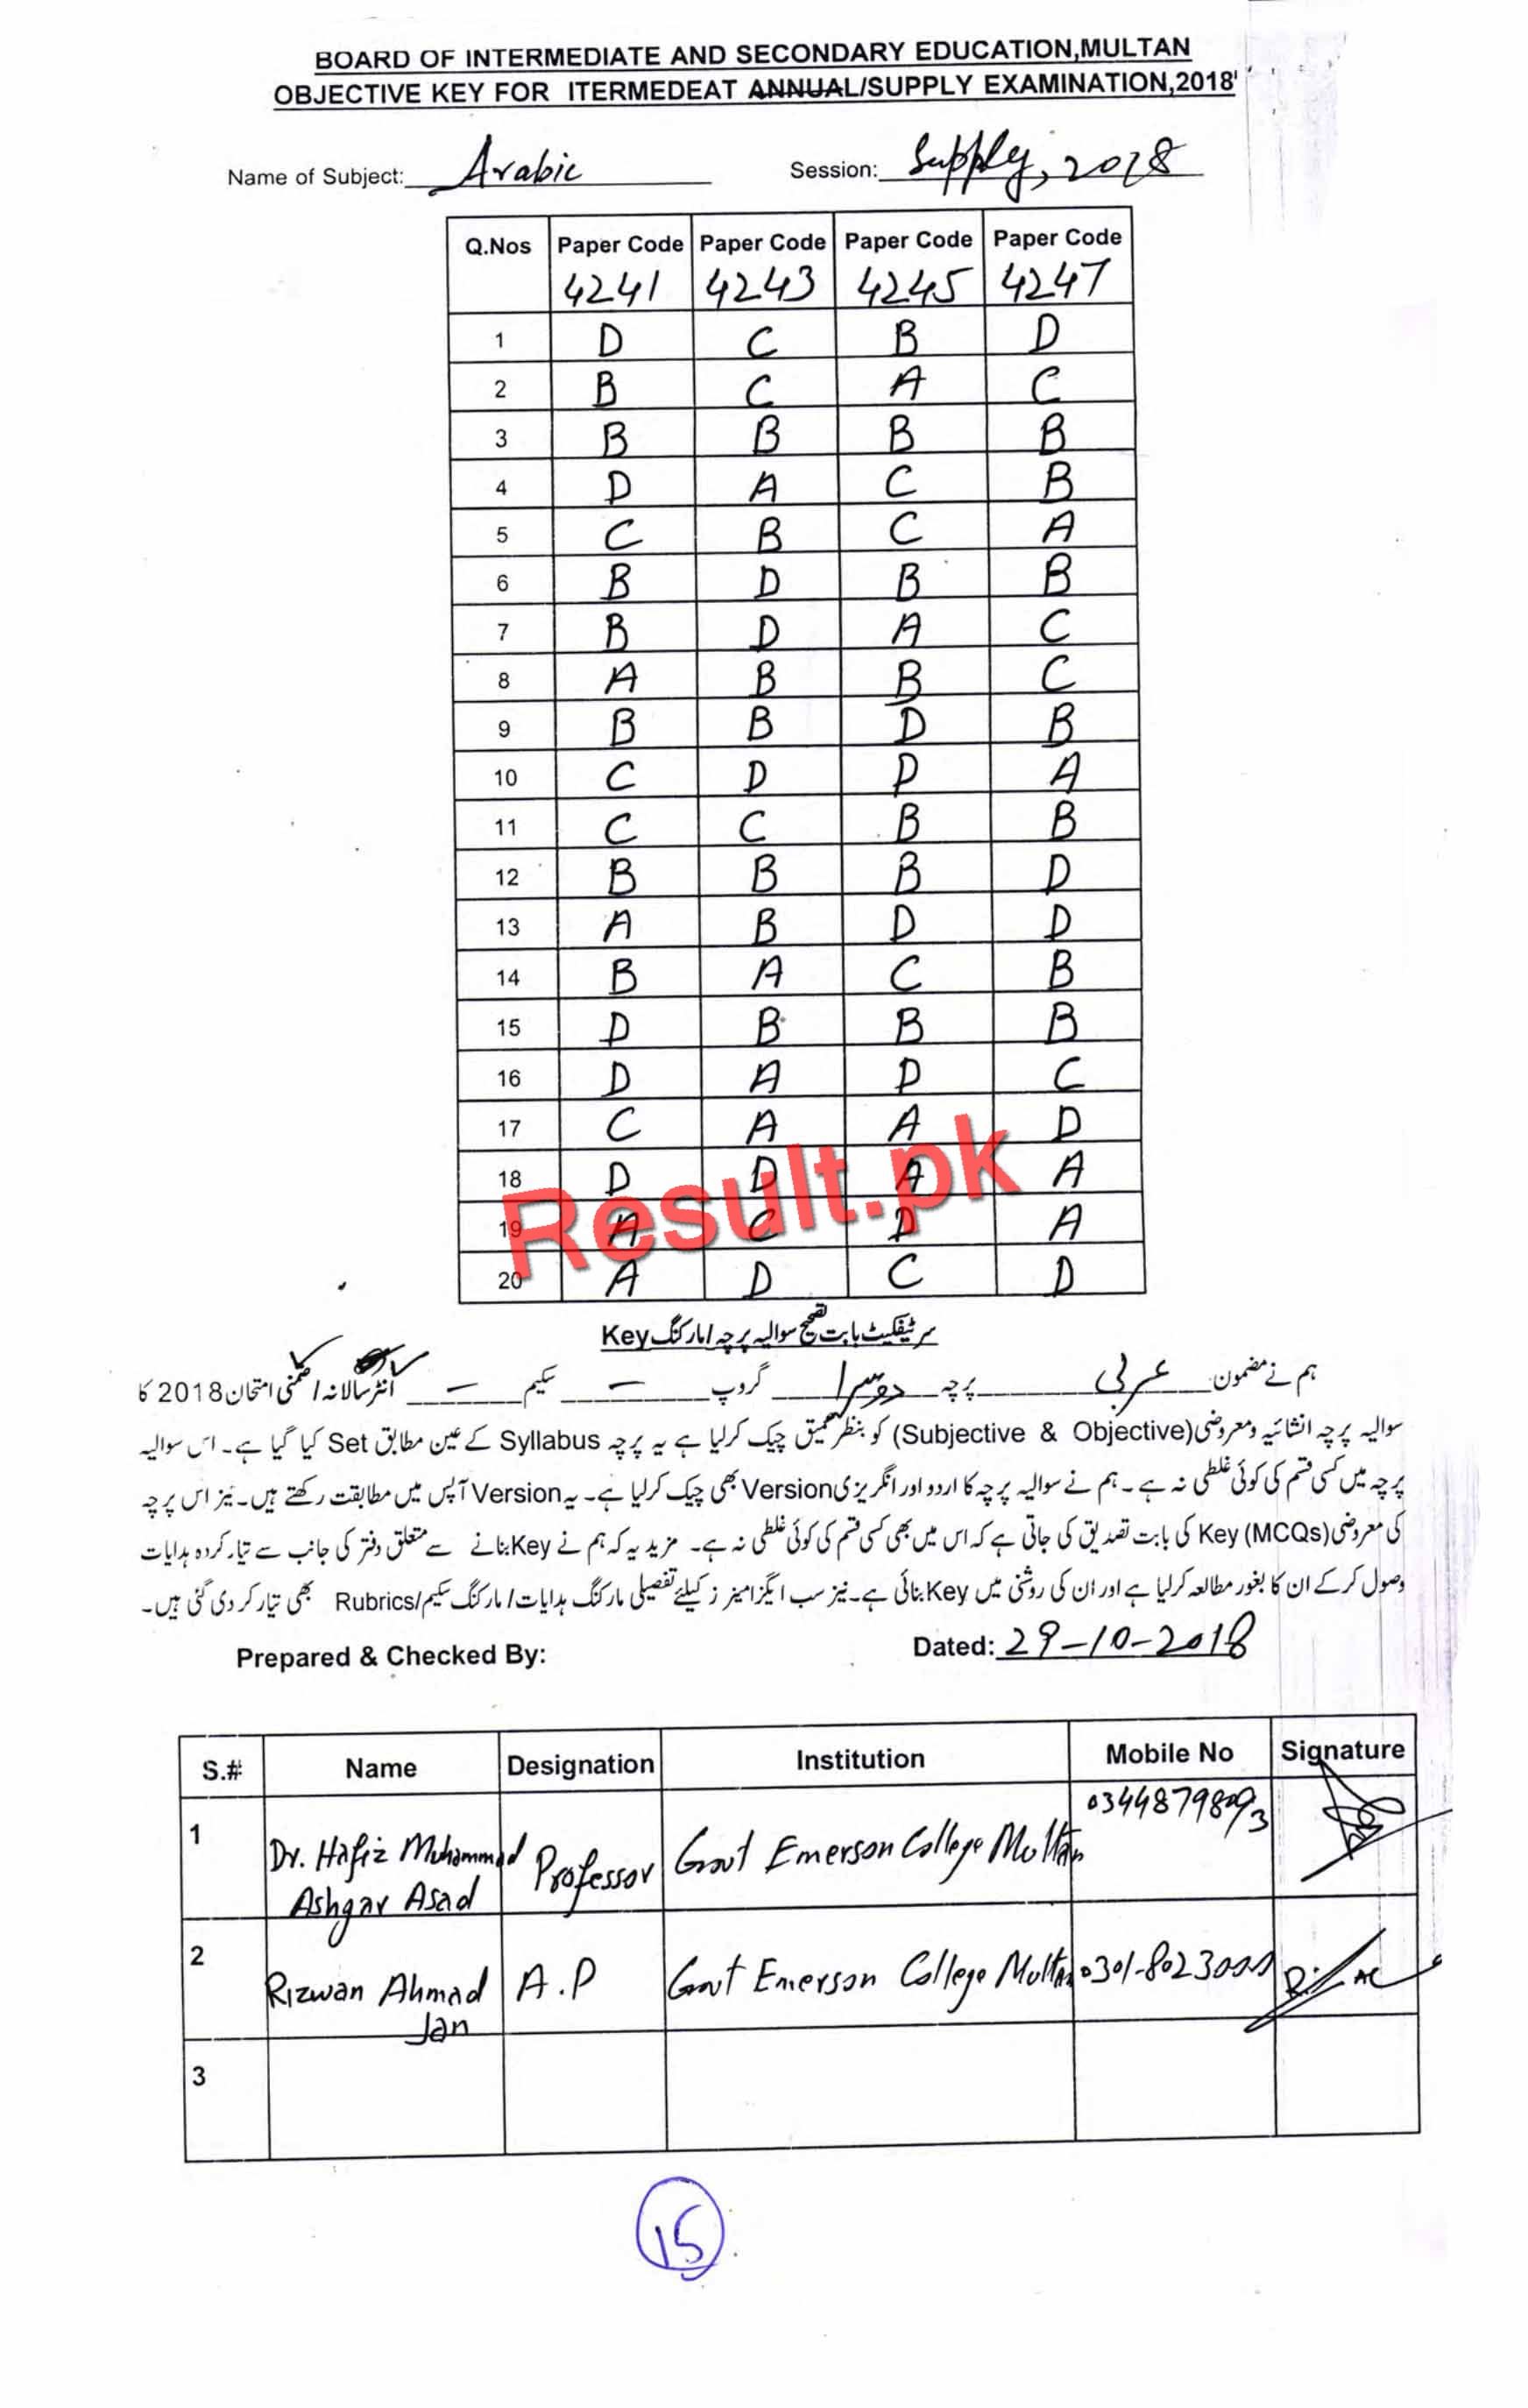 BOARD OF INTERMEDIATE AND SECONDARY EDUCATION,MULTAN
OBJECTIVE KEY FOR ITERMEDEAT ANNUAL/SUPPLY EXAMINATION,2018
Name of Subject: Arabic Session: Supply, 2018
Q.Nos Paper Code Paper Code Paper Code Paper Code
4241 4243 4245 4247
1 D C B D
2 B C A C
3 B B B B
4 D A C B
5 C B C A
6 B D B B
7 B D A C
8 A B B C
9 B B D B
10 C D D A
11 C C B B
12 B B B D
13 A B D D
14 B A C B
15 D B B B
16 D A D C
17 C A A D
18 D D A A
19 A C D A
20 A D C D
Result.pk
سرٹیفکیٹ بابت تصحیح سوالیہ پرچہ/مارکنگ Key
ہم نے مضمون عربی پرچہ دوسرا گروپ — سکیم — انٹر سالانہ/ضمنی امتحان 2018 کا
سوالیہ پرچہ انشائیہ ومعروضی (Subjective & Objective) کو بنظر عمیق چیک کرلیا ہے یہ پرچہ Syllabus کے عین مطابق Set کیا گیا ہے۔ اس سوالیہ
پرچہ میں کسی قسم کی کوئی غلطی نہ ہے۔ ہم نے سوالیہ پرچہ کا اردو اور انگریزی Version بھی چیک کرلیا ہے۔ یہ Version آپس میں مطابقت رکھتے ہیں۔ نیز اس پرچہ
کی معروضی Key (MCQs) کی بابت تصدیق کی جاتی ہے کہ اس میں بھی کسی قسم کی کوئی غلطی نہ ہے۔ مزید یہ کہ ہم نے Key بنانے سے متعلق دفتر کی جانب سے تیار کردہ ہدایات
وصول کرکے ان کا بغور مطالعہ کرلیا ہے اور ان کی روشنی میں Key بنائی ہے۔ نیز سب ایگزامینرز کیلئے تفصیلی مارکنگ ہدایات/مارکنگ سکیم/Rubrics بھی تیار کردی گئی ہیں۔
Prepared & Checked By: Dated: 29-10-2018
S.# Name Designation Institution Mobile No Signature
1 Dr. Hafiz Muhammad Ashgar Asad Professor Govt Emerson College Multan
2 Rizwan Ahmad Jan A.P Govt Emerson College Multan
3
15